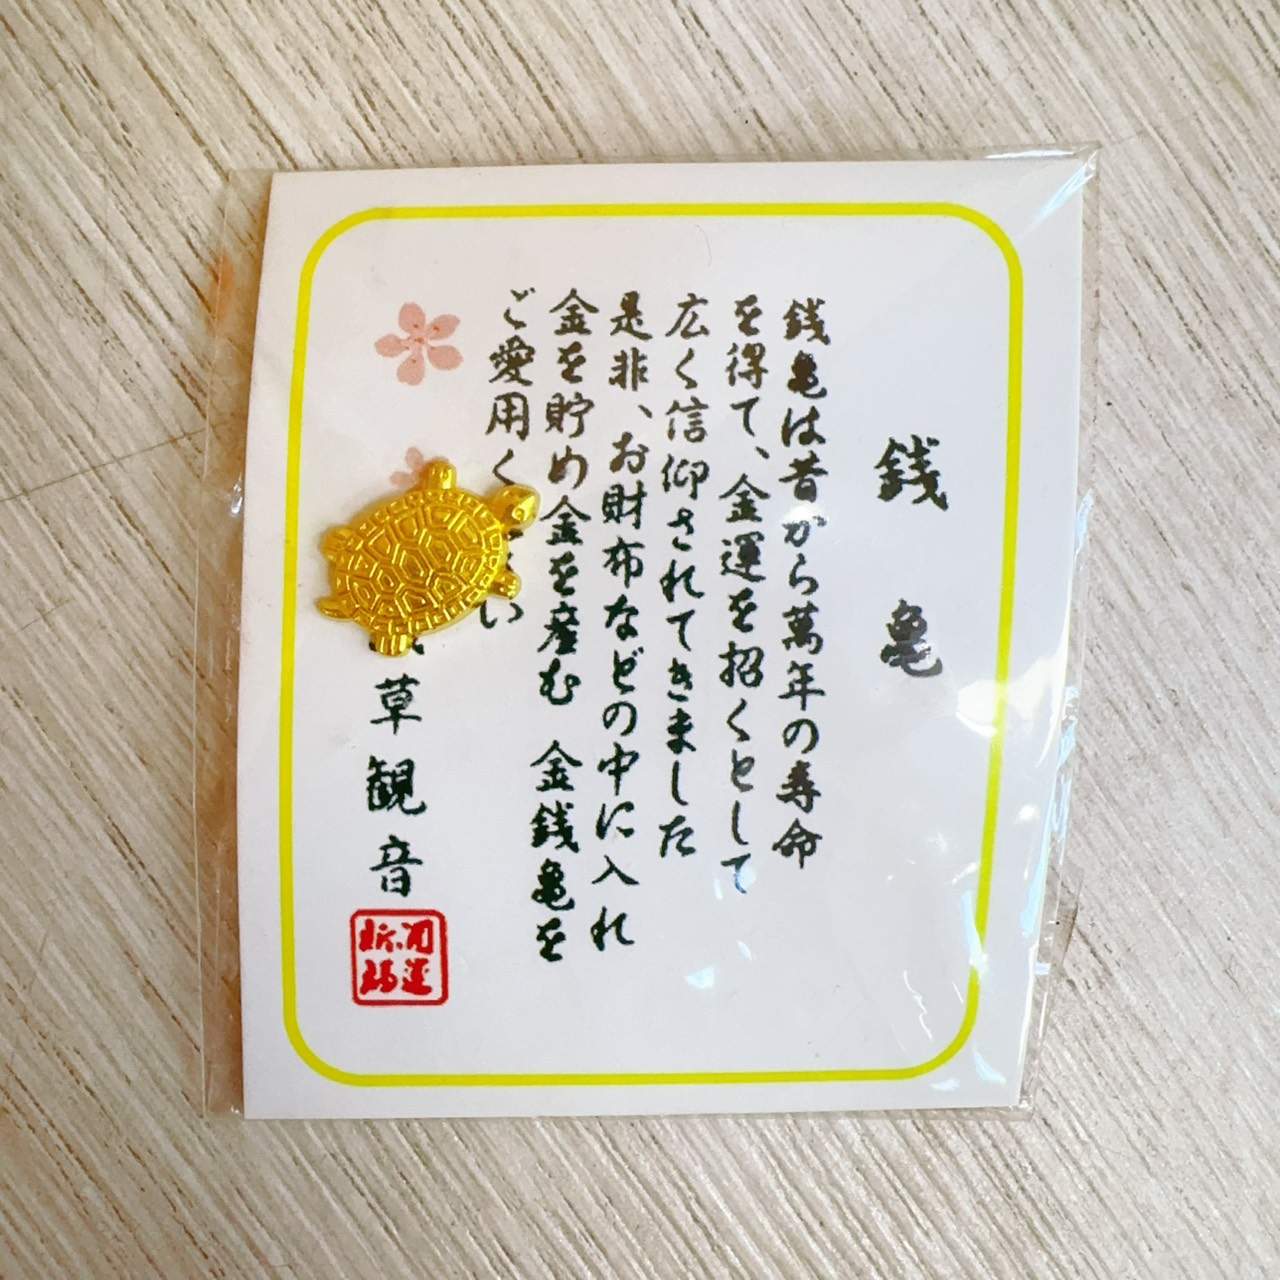 銭亀
銭亀は昔から萬年の寿命
を得て、金運を招くとして
広く信仰されてきました
是非、お財布などの中に入れ
金を貯め金を産む 金銭亀を
ご愛用く い
草観音
開運
祈福